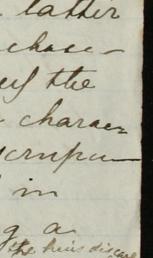 latter
chase-
of the
charac-
scrupu-
in
g a
the heirs